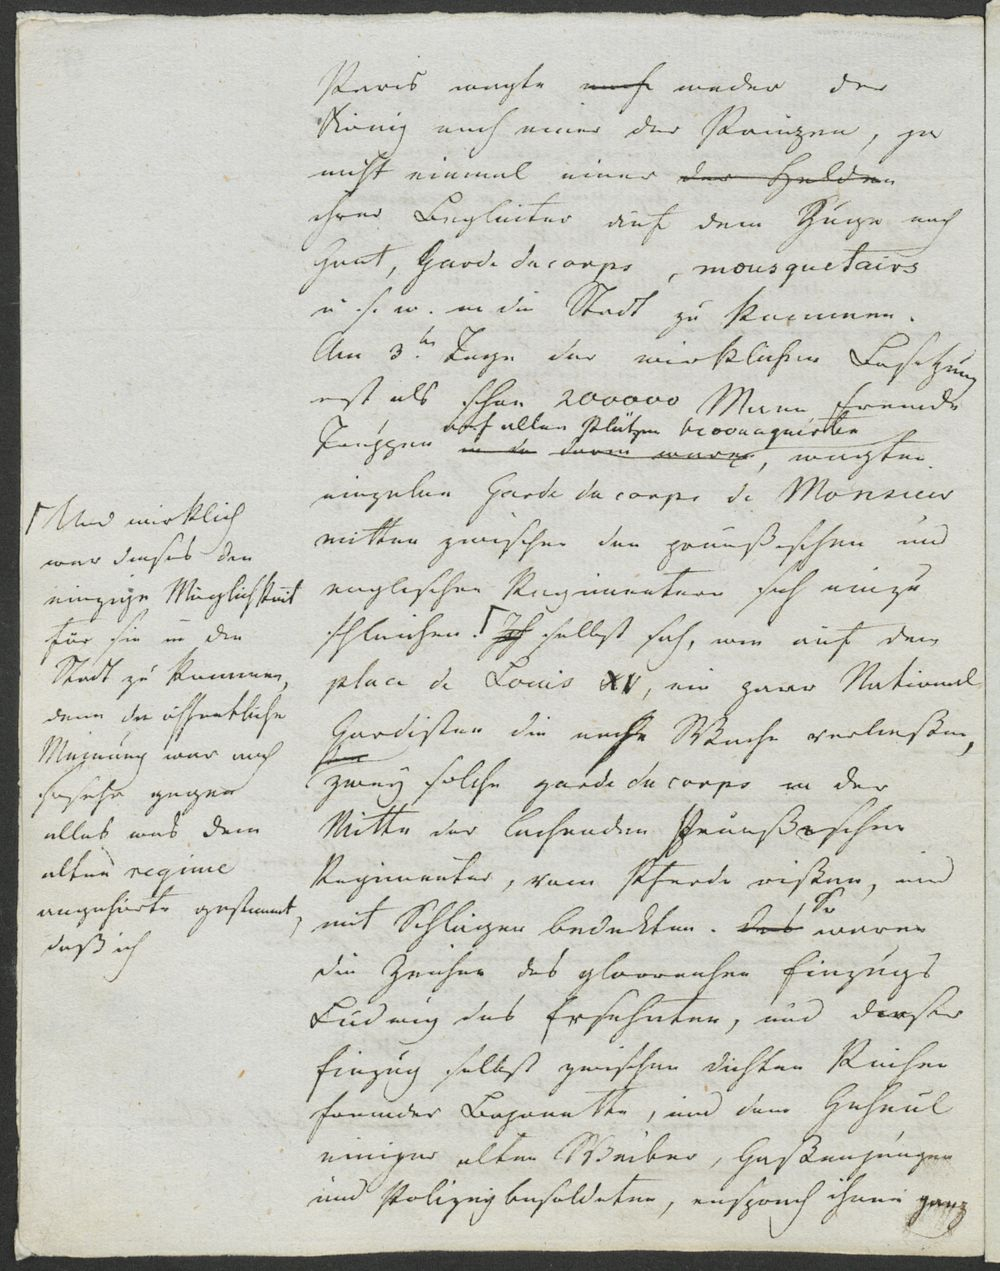 Paris wagte weder der
König noch einer der Prinzen, ja
nicht einmal einer der Helden
ihrer Begleiter auf dem Zuge nach
Gent, Garde du corps, mousquetairs
u. s. w. in die Stadt zu kommen.
Am 3.ten Tage der wirklichen Besetzung
erst als schon 200000 Mann fremde
auf allen Plätzen bivouaquirten
Truppen in der darin waren, wagten
einzelne Garde du corps de Monsieur
mitten zwischen den preußischen und
englischen Regimentern sich einzu
schleichen. Ich selbst sah, wie auf dem
place de Louis XV, ein paar National
Gardisten die nahe Wache verließen,
zwey solche garde du corps in der
Mitte der lachenden Preußischen
Regimenter, vom Pferde rißen, und
mit Schlägen bedekten. Das So waren
die Zeichen des glorreichen Einzugs
Ludwig des Ersehnten, und dieser
Einzug selbst zwischen dichten Reihen
fremder Bajonette, und dem Geheul
einiger alten Weiber, Gaßenjungen
und Polizeybesoldeten, entsprach ihnen ganz
Und wirklich
war dieses die
einzige Möglichkeit
für sie in die
Stadt zu kommen,
denn die öffentliche
Meinung war noch
so sehr gegen
alles was dem
alten regime
angehörte gestimmt,
daß ich